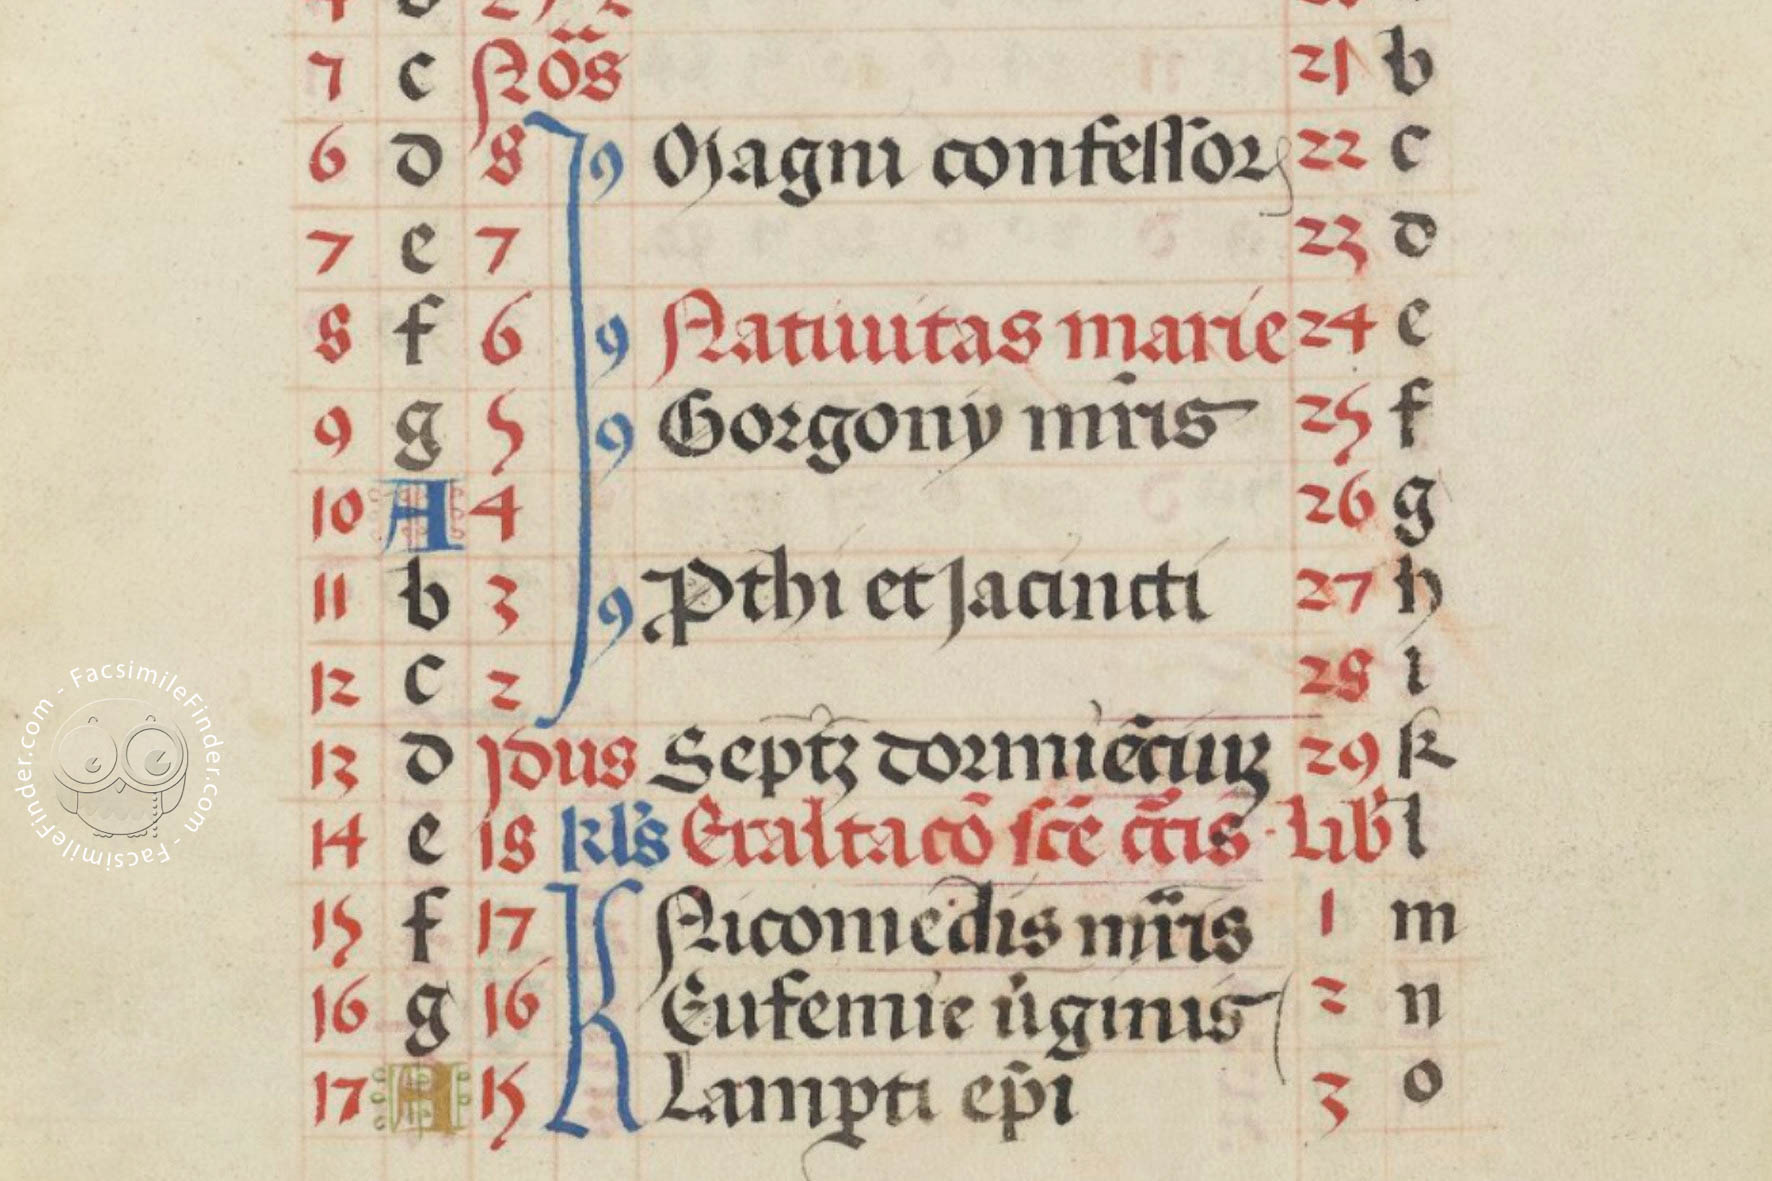 7 c Nōs 21 b
6 d 8 9 Magni confessor 22 c
7 e 7 23 d
8 f 6 9 Natiuitas marie 24 e
9 g 5 9 Gorgony mr̄is 25 f
10 A 4 26 g
11 b 3 9 Pthi et Jacincti 27 h
12 c 2 28 i
13 d Jdus Septꝫ dormiēciuꝫ 29 k
14 e 18 kl's Exaltacō scē c̄cis · Lib' l
15 f 17 K Nicomedis mr̄is 1 m
16 g 16 Eufemie v̄ginis 2 n
17 A 15 Lamꝑti ep̄i 3 o
FacsimileFinder.com - FacsimileFinder.com - FacsimileFinder.com